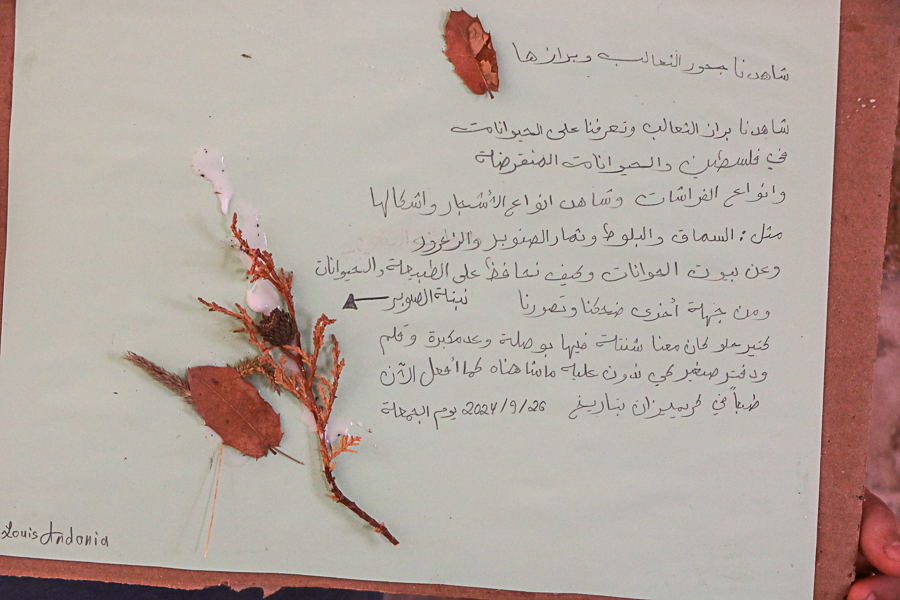 شاهدنا جحور الثعالب وبرازها
شاهدنا براز الثعالب وتعرفنا على الحيوانات
في فلسطين والحيوانات المنقرضة
وانواع الفراشات وشاهد انواع الأشجار واشكالها
مثل: السماق والبلوط وثمار الصنوبر والزعرور
وعن بيوت الحوانات وكيف نحافظ على الطبيعة والحيوانات
ومن جهة أخرى ضحكنا وتصورنا
نبتة الصنوبر
كتير حلو كان معنا شنتة فيها بوصلة وعدمكبرة وقلم
ودفتر صغير لكي ندون علية ماشاهناه كما أفعل الآن
طبعاً في كريميزان بتاريخ 2024/9/26 يوم الجمعة
Louis Andonia